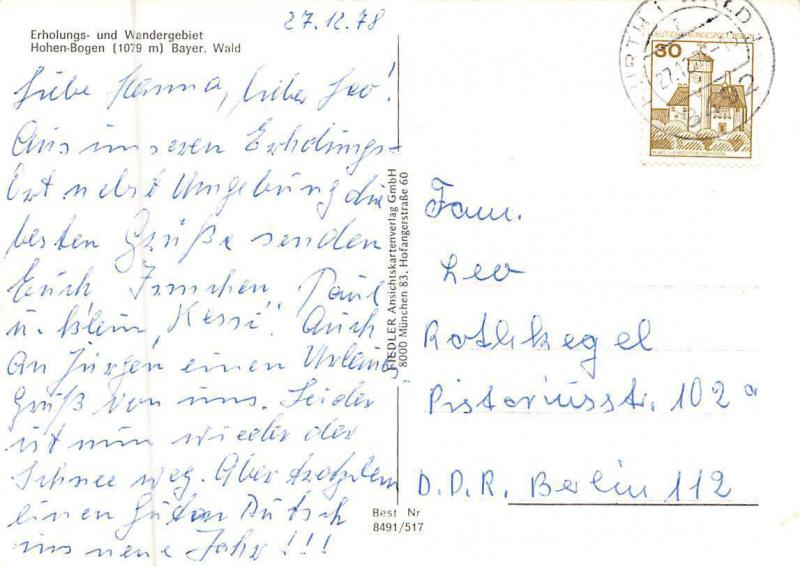 27.12.78
Erholungs- und Wandergebiet
Hohen-Bogen (1079 m) Bayer. Wald
Liebe Hanna, lieber Leo!
Aus unseren Erholungs-
Ort nebst Umgebung die
besten Grüße senden
Euch, Irmchen, Paul
u. klein „Kessi“. Auch
an Jürgen einen Urlaubs-
Gruß von uns. Leider
ist nun wieder der
Schnee weg. Aber trotzdem
einen Guten Rutsch
ins neue Jahr!!!
FIEDLER Ansichtskartenverlag GmbH
8000 München 83, Hofangerstraße 60
Best Nr
8491/517
DEUTSCHE BUNDESPOST BERLIN
30
FURTH I WALD 1
27.12.
8492
Fam.
Leo
Rothkegel
Pistoriusstr. 102a
D.D.R. Berlin 112